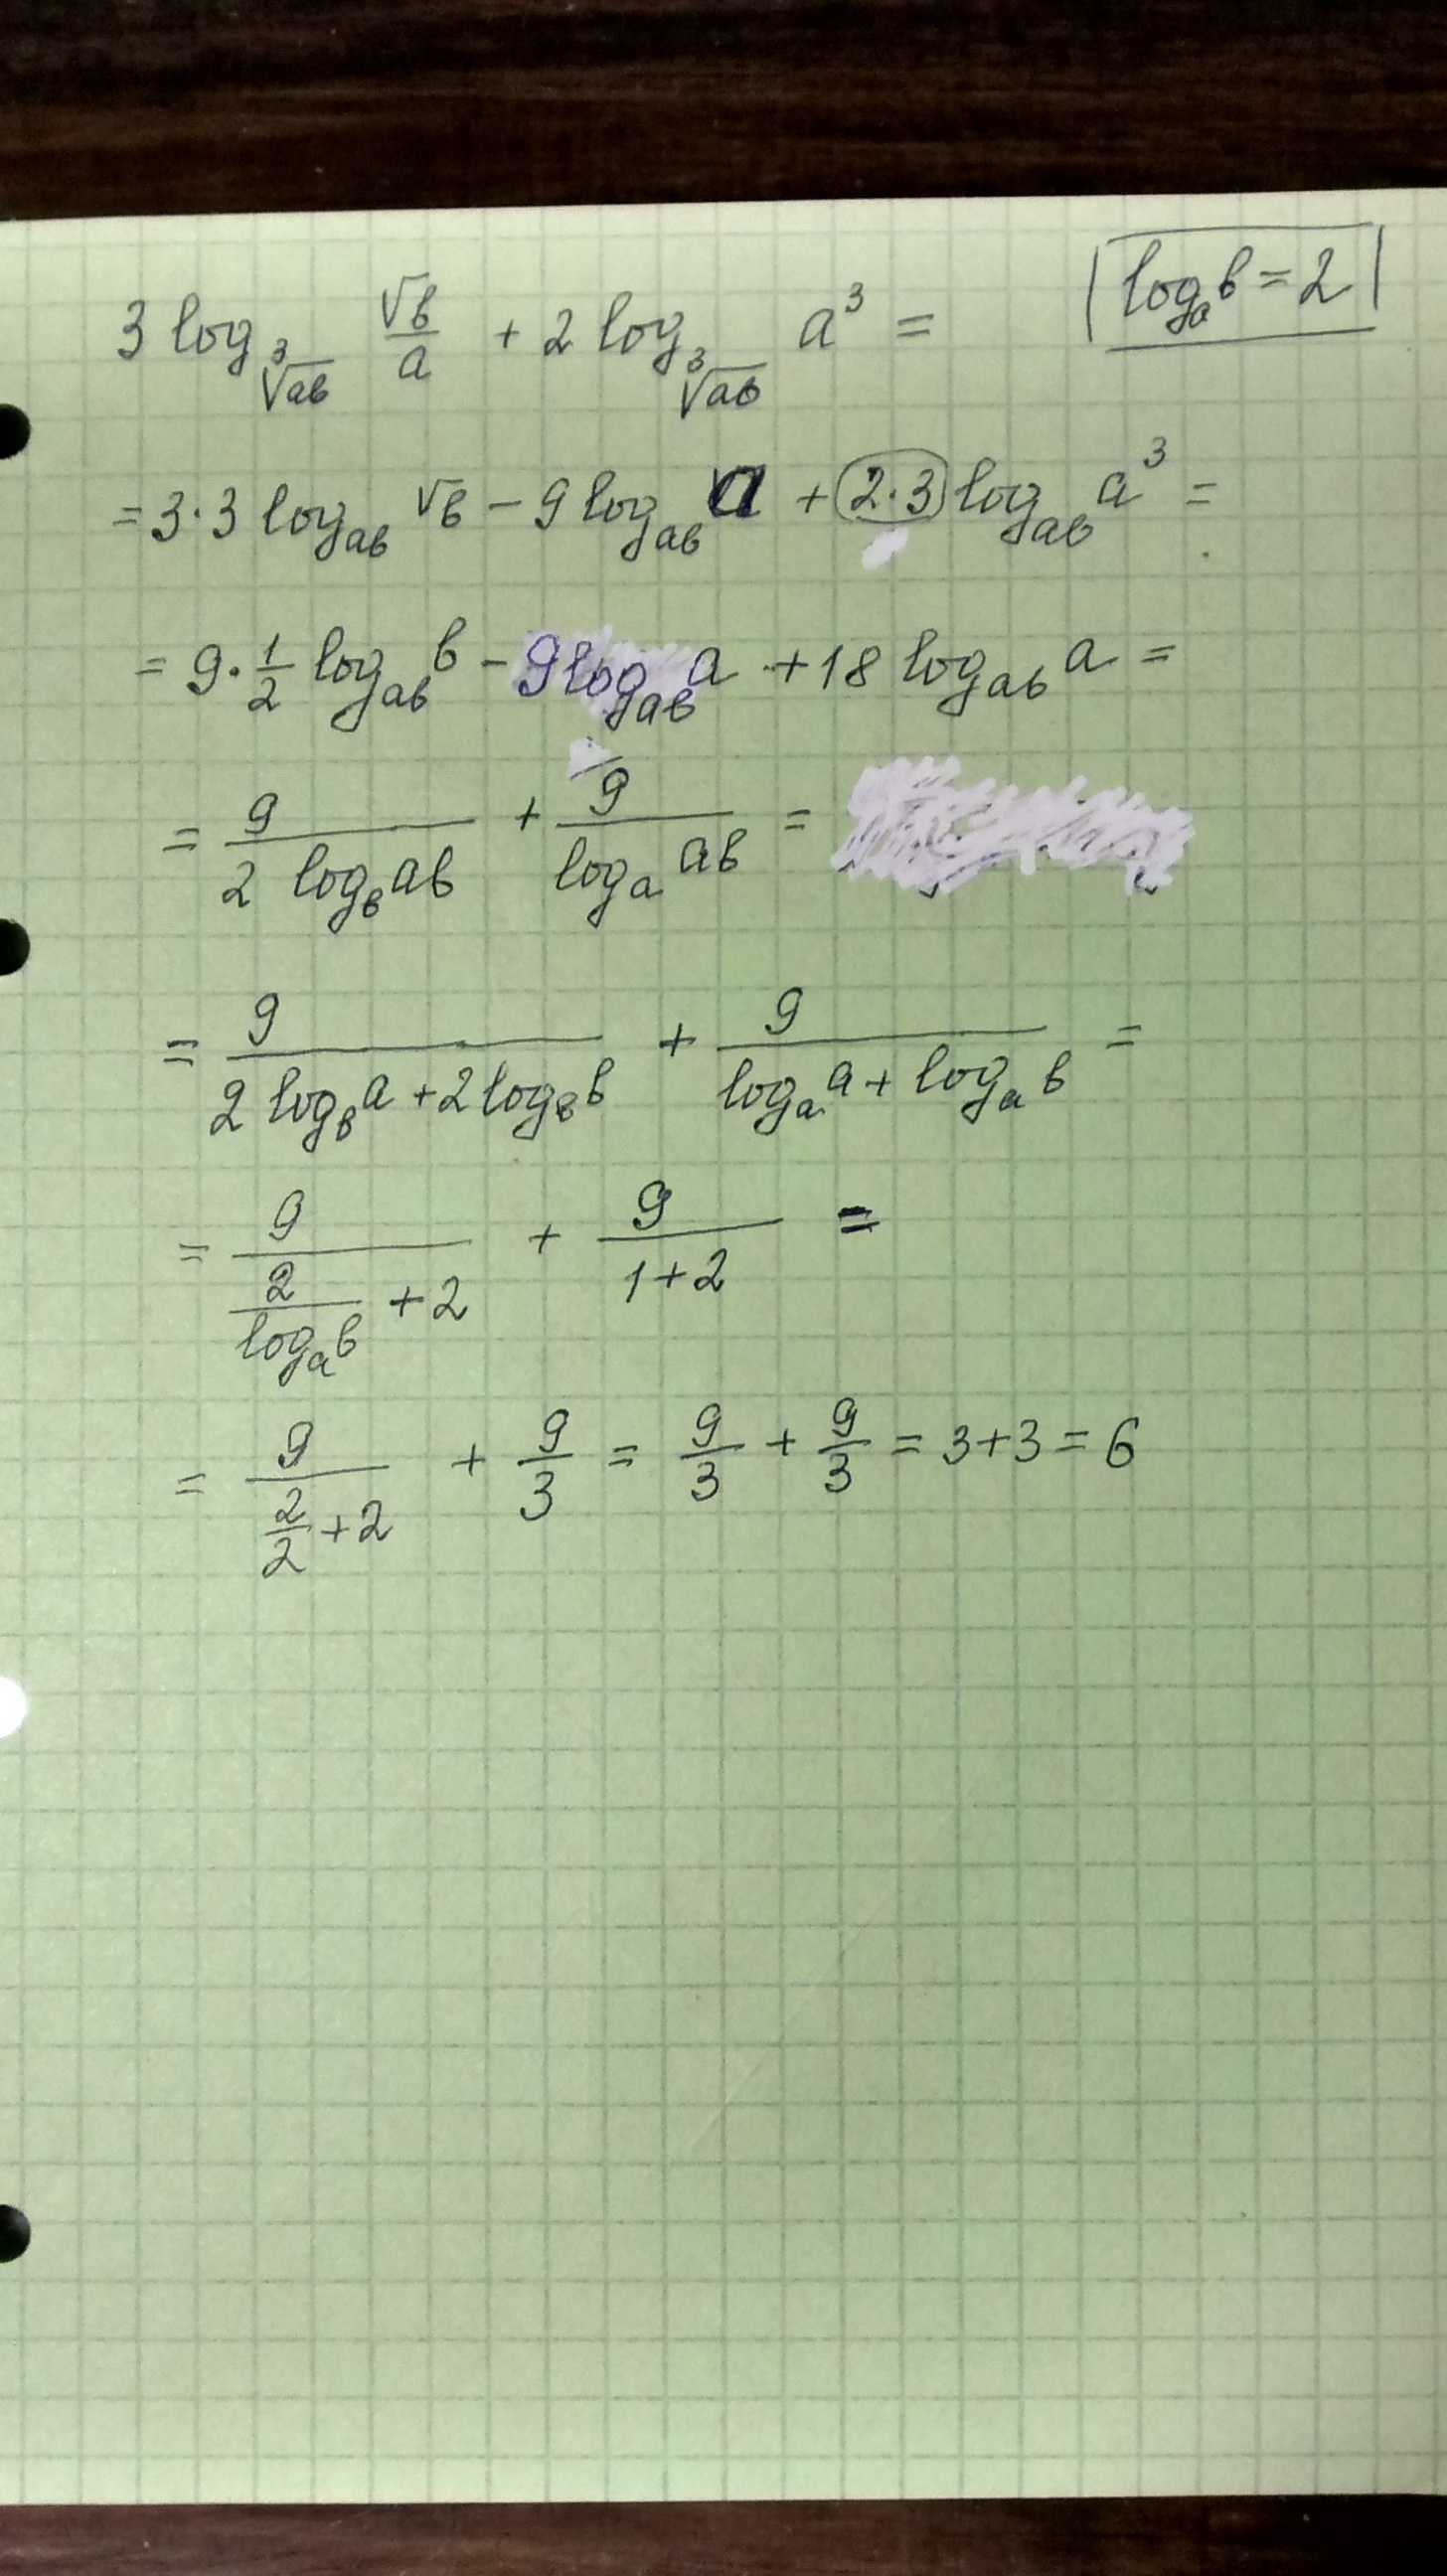 3 log_∛(ab) √b/a + 2 log_∛(ab) a³ =
|log_a b = 2|
= 3·3 log_ab √b − 9 log_ab a + (2·3) log_ab a³ =
= 9·1/2 log_ab b − 9 log_ab a + 18 log_ab a =
= 9/(2 log_b ab) + 9/(log_a ab) =
= 9/(2 log_b a + 2 log_b b) + 9/(log_a a + log_a b) =
= 9/(2/(log_a b) + 2) + 9/(1+2) =
= 9/(2/2 + 2) + 9/3 = 9/3 + 9/3 = 3+3 = 6